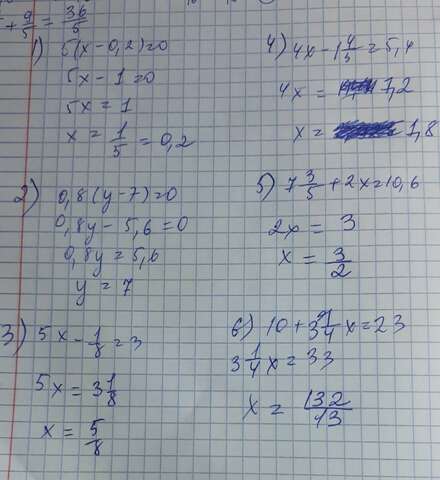 + 9/5 = 36/5
1) 5(x-0,2)=0
5x-1=0
5x=1
x = 1/5 = 0,2
2) 0,8(y-7)=0
0,8y-5,6=0
0,8y=5,6
y=7
3) 5x - 1/8 = 3
5x = 3 1/8
x = 5/8
4) 4x - 1 4/5 = 5,4
4x = 7,2
x = 1,8
5) 7 3/5 + 2x = 10,6
2x = 3
x = 3/2
6) 10 + 3 1/4 x = 23
3 1/4 x = 33
x = 132/13